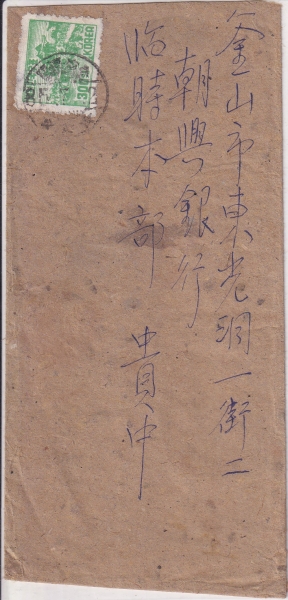 釜山市東光洞一街二
朝興銀行
临時本部 貴中
KOREA
300